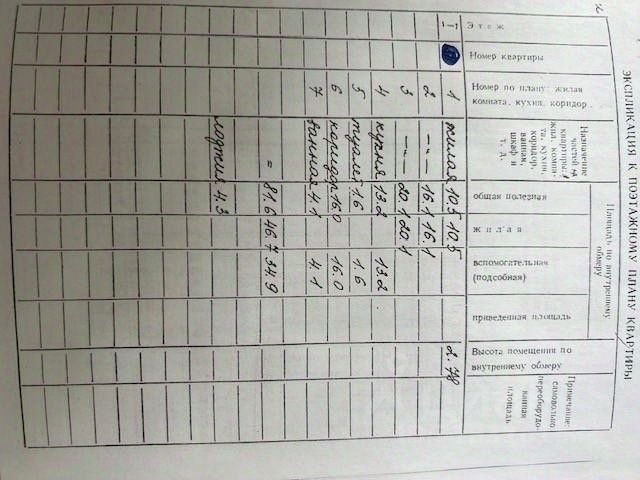 ЭКСПЛИКАЦИЯ К ПОЭТАЖНОМУ ПЛАНУ КВАРТИРЫ
Этаж
Номер квартиры
Номер по плану: жилая
комната, кухня, коридор
Назначение
частей
квартиры:
жил. комна-
та, кухня,
коридор,
ванная,
шкаф и
т. д.
Площадь по внутреннему
обмеру
общая полезная
жилая
вспомогательная
(подсобная)
приведенная площадь
Высота помещения по
внутреннему обмеру
Примечание:
самовольно
переоборудо-
ванная
площадь
1 жилая 10.5 10.5 2.78
2 —"— 16.1 16.1
3 —"— 20.1 20.1
4 кухня 13.2 13.2
5 туалет 1.6 1.6
6 коридор 16.0 16.0
7 ванная 4.1 4.1
= 81.6 46.7 34.9
лоджия 4.3